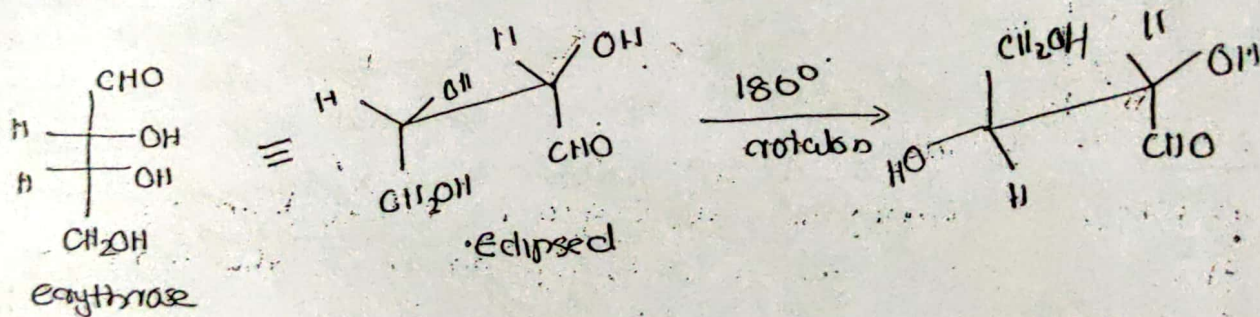 CHO
H OH
H OH
CH₂OH
erythrose
≡
H OH
H OH
CHO
CH₂OH
Eclipsed
180°
rotation
CH₂OH H
OH
HO
CHO
H